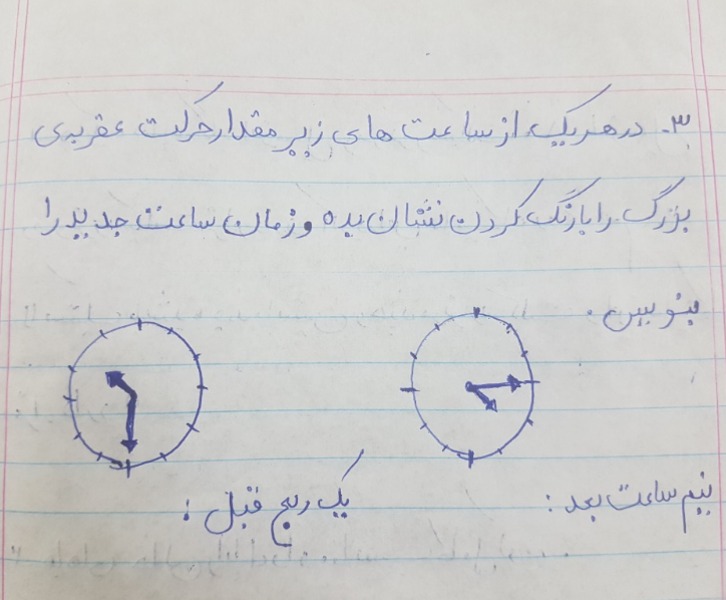 ۳. در هر یک از ساعت های زیر مقدار حرکت عقربه‌ی
بزرگ را با رنگ کردن نشان بده و زمان ساعت جدید را
بنویس.
نیم ساعت بعد :
یک ربع قبل :